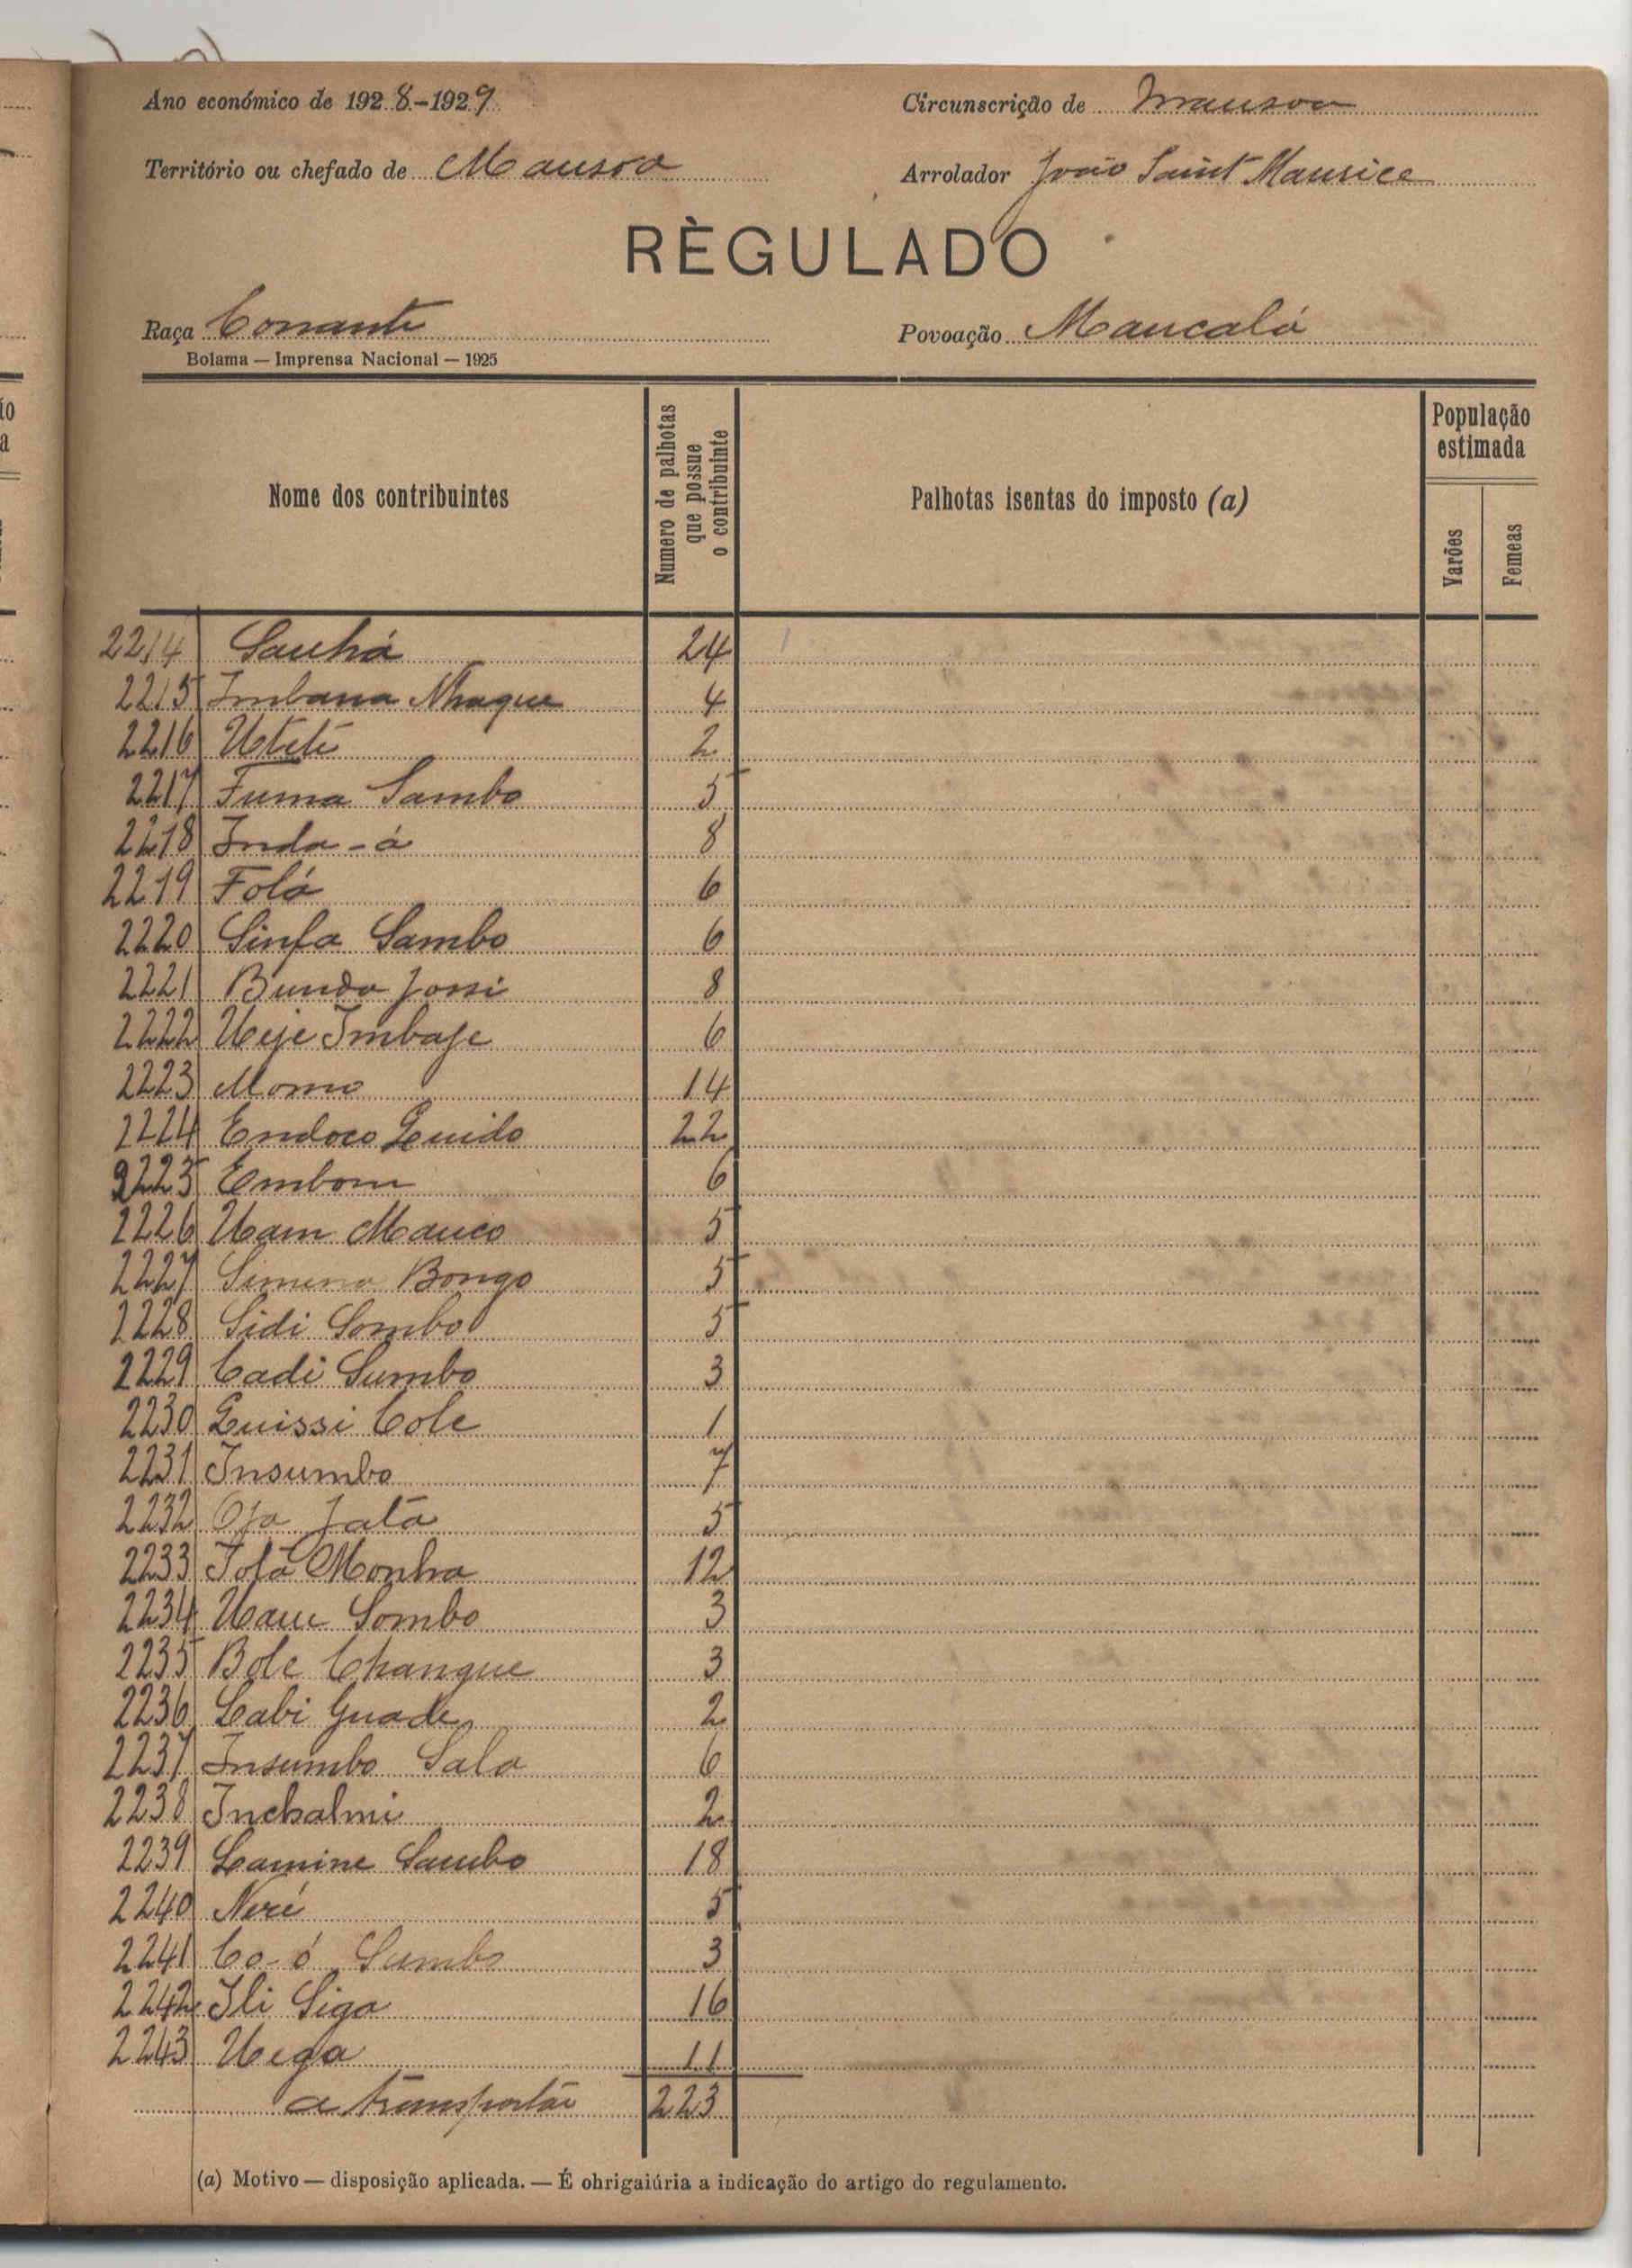 Ano económico de 1928-1929 Circunscrição de Mansoa
Território ou chefado de Mansoa Arrolador João Saint Maurice
RÈGULADO
Raça Povoação Mancaló
Bolama — Imprensa Nacional — 1925
Nome dos contribuintes Numero de palhotas que possue o contribuinte Palhotas isentas do imposto (a) População estimada Varões Femeas
2214 Sanhá 24
2215 Imbana Nhaque 4
2216 Uteté 2
2217 Fuma Sambo 5
2218 Inda-á 8
2219 Foló 6
2220 Sinfa Sambo 6
2221 Bunda Jossi 8
2222 Ueje Imbaje 6
2223 Momo 14
2224 Endoco Quido 22
2225 Embom 6
2226 Uam Manco 5
2227 Simena Bongo 5
2228 Sidi Sombo 5
2229 Cadi Sumbo 3
2230 Quissi Cole 1
2231 Insumbo 7
2232 Jatá 5
2233 Monha 12
2234 Sombo 3
2235 Bole Changue 3
2236 Labi Guade 2
2237 Insumbo Sala 6
2238 Inchalmi 2
2239 Lamine Sambo 18
2240 Neré 5
2241 Co-ó Sumbo 3
2242 Ili Siga 16
2243 Uega 11
a transportar 223
(a) Motivo — disposição aplicada. — É obrigaiúria a indicação do artigo do regulamento.